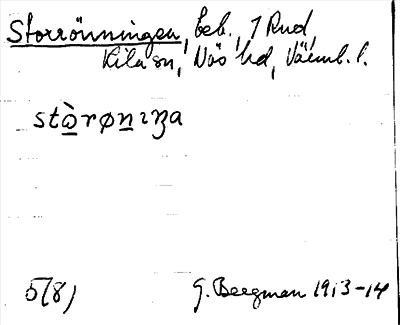 Storrönningen, beb., 1 Rud,
Kila sn, Näs hd, Värml. l.
stò̲røn̲ıŋa
5(8)
G. Bergman 1913-14